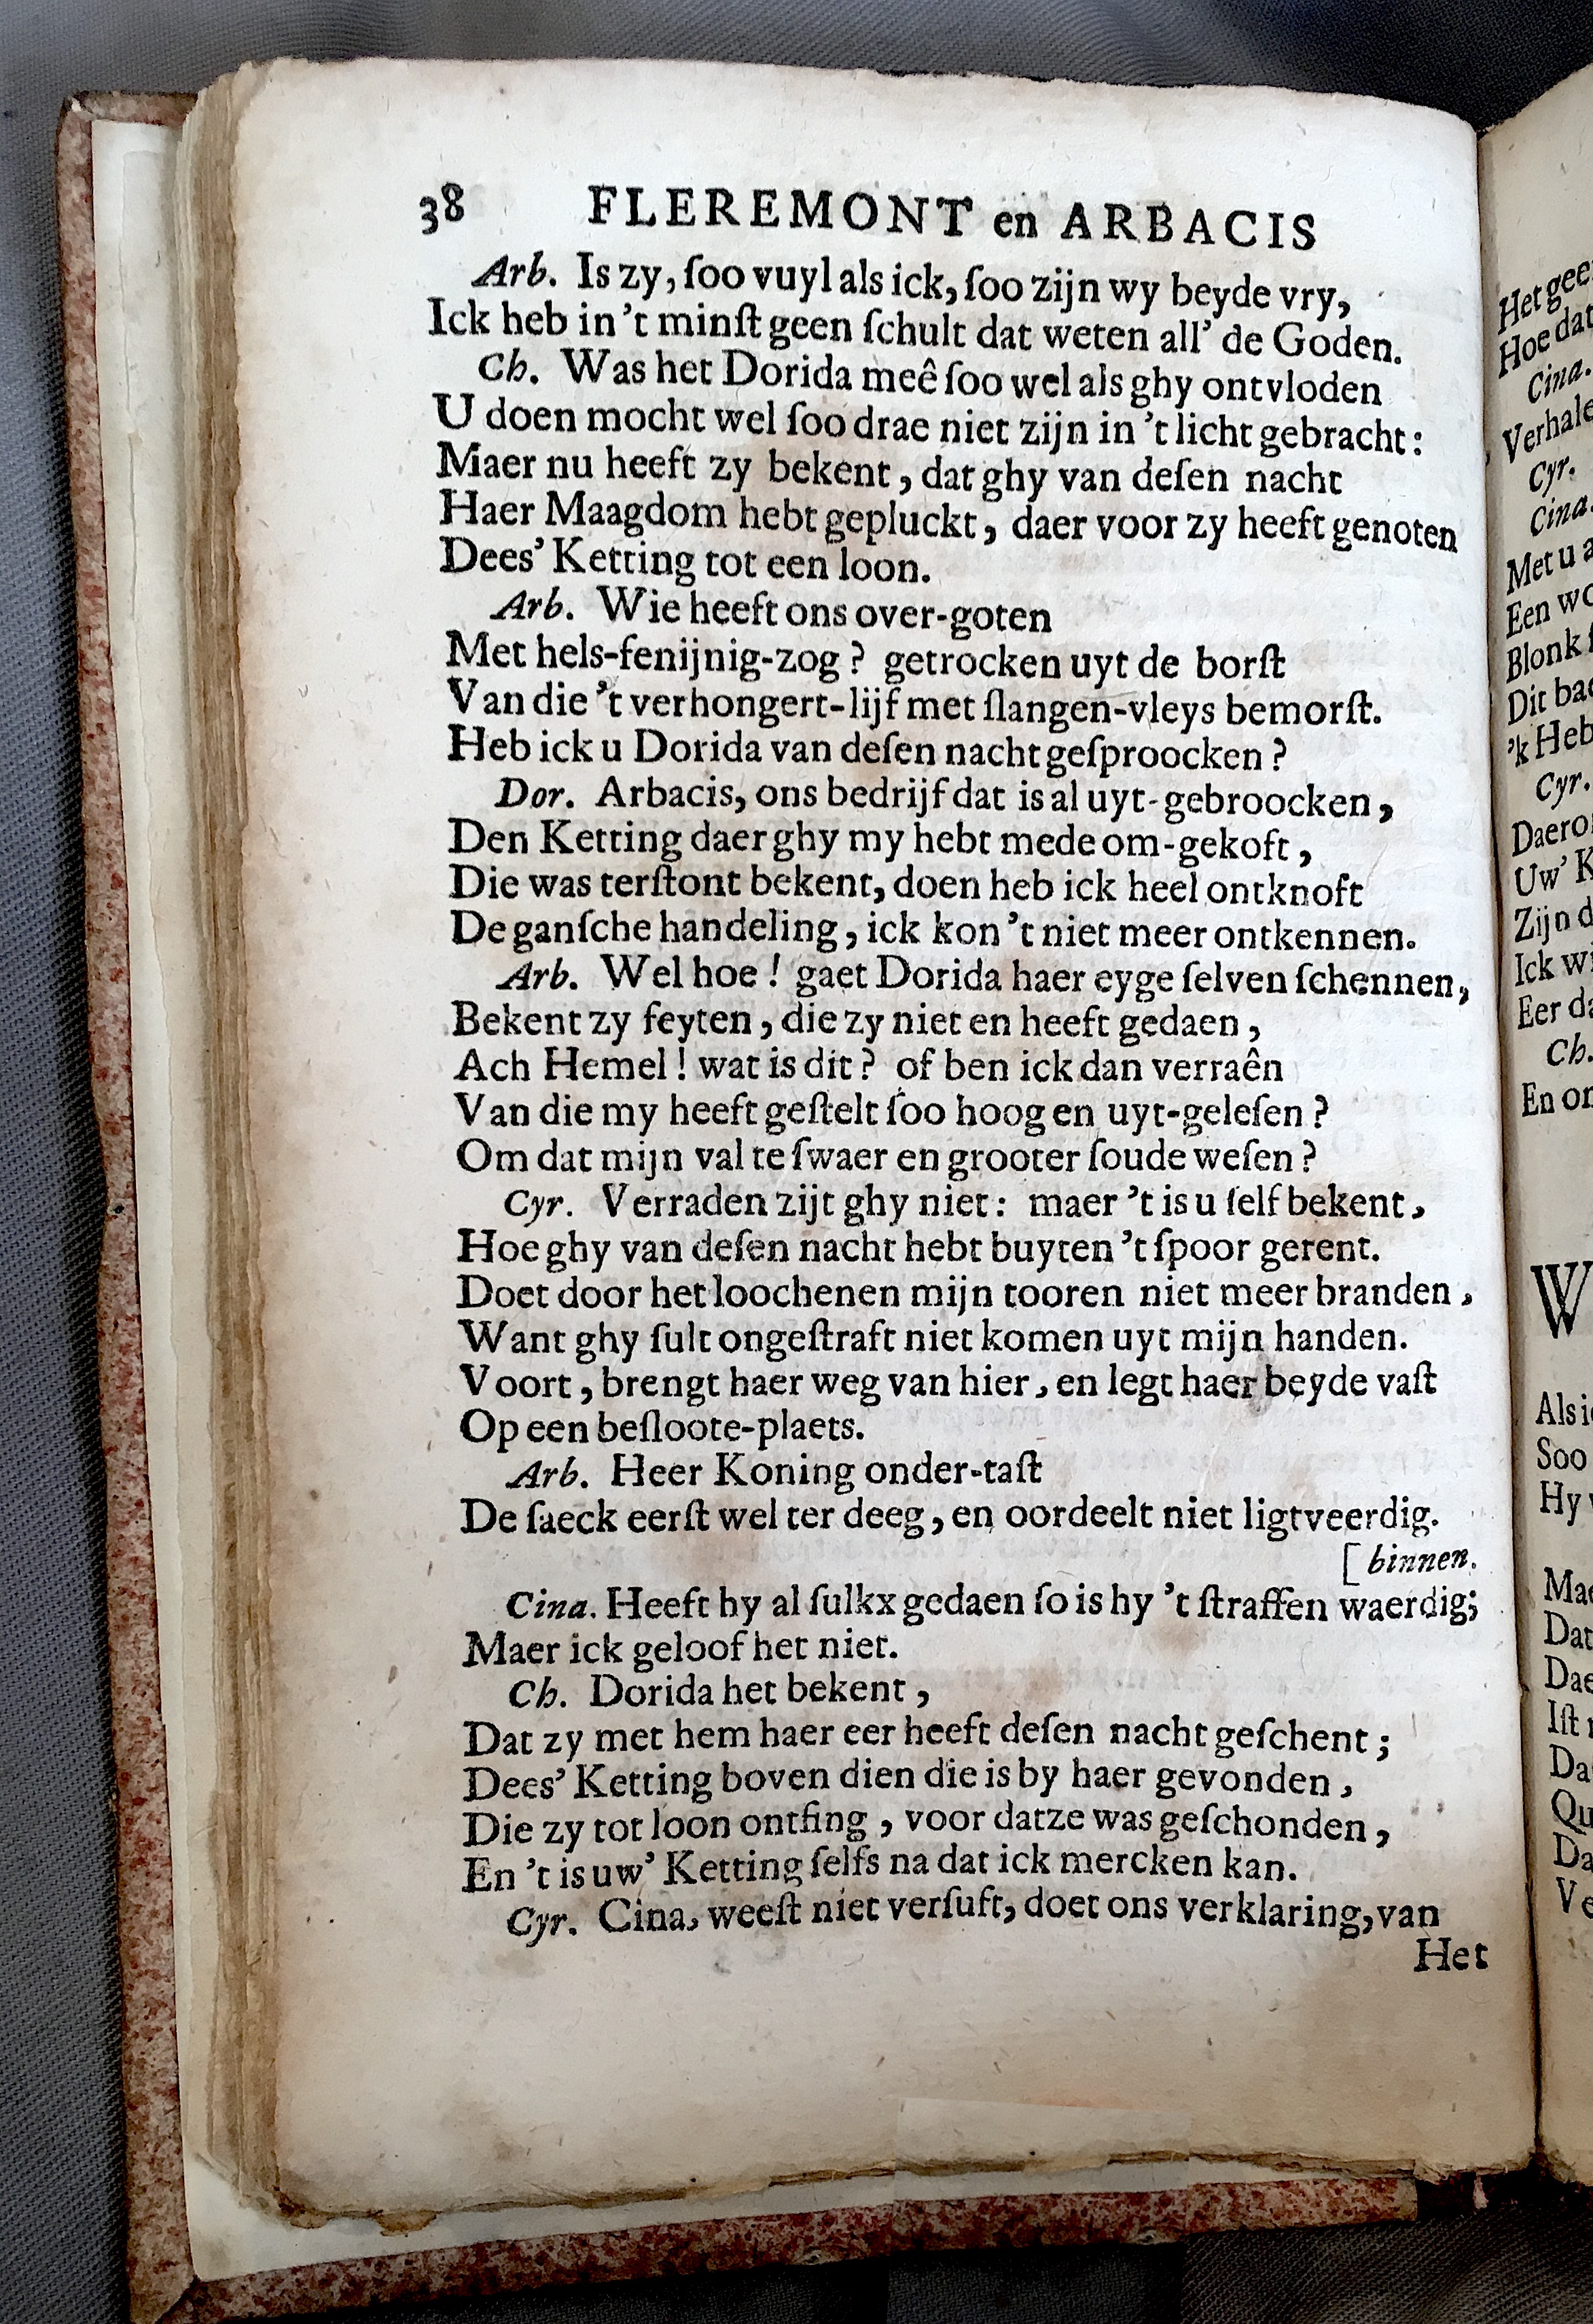 38 FLEREMONT en ARBACIS
Arb. Is zy, ſoo vuyl als ick, ſoo zijn wy beyde vry,
Ick heb in 't minſt geen ſchult dat weten all' de Goden.
Ch. Was het Dorida meê ſoo wel als ghy ontvloden
U doen mocht wel ſoo drae niet zijn in 't licht gebracht:
Maer nu heeft zy bekent, dat ghy van deſen nacht
Haer Maagdom hebt gepluckt, daer voor zy heeft genoten
Dees' Ketting tot een loon.
Arb. Wie heeft ons over-goten
Met hels-fenijnig-zog? getrocken uyt de borſt
Van die 't verhongert-lijf met ſlangen-vleys bemorſt.
Heb ick u Dorida van deſen nacht geſproocken?
Dor. Arbacis, ons bedrijf dat is al uyt-gebroocken,
Den Ketting daer ghy my hebt mede om-gekoft,
Die was terſtont bekent, doen heb ick heel ontknoft
De ganſche handeling, ick kon 't niet meer ontkennen.
Arb. Wel hoe! gaet Dorida haer eyge ſelven ſchennen,
Bekent zy feyten, die zy niet en heeft gedaen,
Ach Hemel! wat is dit? of ben ick dan verraên
Van die my heeft geſtelt ſoo hoog en uyt-geleſen?
Om dat mijn val te ſwaer en grooter ſoude weſen?
Cyr. Verraden zijt ghy niet: maer 't is u ſelf bekent,
Hoe ghy van deſen nacht hebt buyten 't ſpoor gerent.
Doet door het loochenen mijn tooren niet meer branden,
Want ghy ſult ongeſtraft niet komen uyt mijn handen.
Voort, brengt haer weg van hier, en legt haer beyde vaſt
Op een beſloote-plaets.
Arb. Heer Koning onder-taſt
De ſaeck eerſt wel ter deeg, en oordeelt niet ligtveerdig.
[binnen.
Cina. Heeft hy al ſulkx gedaen ſo is hy 't ſtraffen waerdig;
Maer ick geloof het niet.
Ch. Dorida het bekent,
Dat zy met hem haer eer heeft deſen nacht geſchent;
Dees' Ketting boven dien die is by haer gevonden,
Die zy tot loon ontfing, voor datze was geſchonden,
En 't is uw' Ketting ſelfs na dat ick mercken kan.
Cyr. Cina, weeſt niet verſuft, doet ons verklaring, van
Het
Het
Hoe dat
Cina.
Verhale
Cyr.
Cina.
Met u
Een
Blonk
Dit
'k Heb
Cyr.
Uw'
Zijn
Ick
Eer
Ch.
En
W
Als
Soo
Hy
Dat